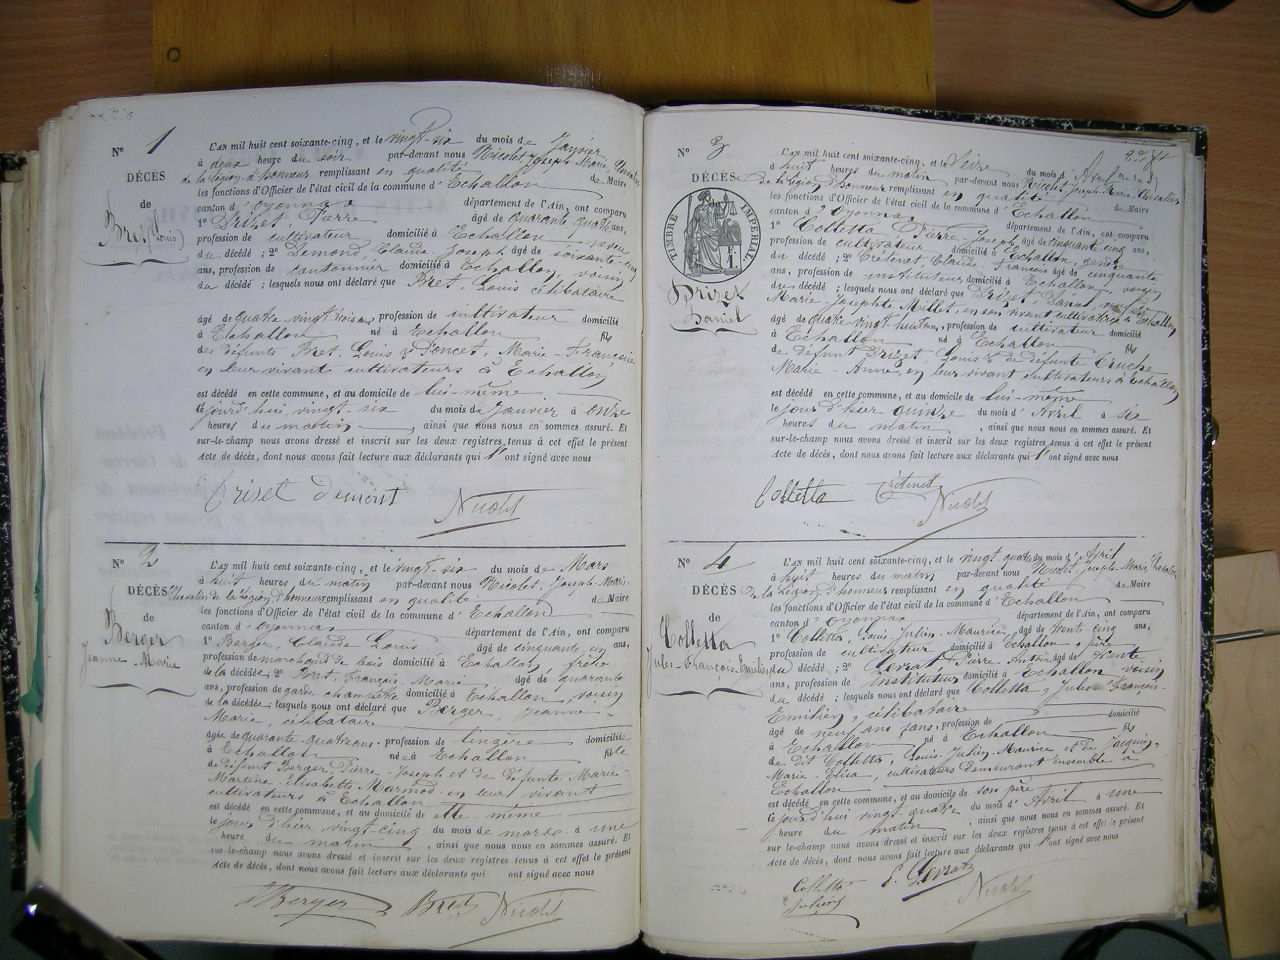 N° 1
DÉCÈS
de
Bret
(Louis)
L'AN mil huit cent soixante-cinq, et le vingt-six du mois de Janvier
à deux heure du soir par-devant nous Nicolet Joseph Marie, Chevalier
de la légion d'honneur remplissant en qualité de Maire
les fonctions d'Officier de l'état civil de la commune d'Echallon
canton d'oyonnax département de l'Ain, ont comparu
1° Prizet Pierre âgé de quarante quatre ans,
profession de cultivateur domicilié à Echallon, neveu
du décédé ; 2° Demond, Claude Joseph âgé de soixante-
ans, profession de cantonnier domicilié à Echallon, voisin
du décédé ; lesquels nous ont déclaré que Bret, Louis célibataire
âgé de quatre vingt trois ans, profession de cultivateur domicilié
à Echallon né à Echallon fils
des défunts Bret, Louis & Poncet, Marie-Françoise
en leur vivant cultivateurs à Echallon
est décédé en cette commune, et au domicile de lui-même.
Ce jourd'hui vingt-six du mois de Janvier à onze
heures du matin, ainsi que nous nous en sommes assuré. Et
sur-le-champ nous avons dressé et inscrit sur les deux registres tenus à cet effet le présent
acte de décès, dont nous avons fait lecture aux déclarants qui l'ont signé avec nous
Prizet Demont
Nicolet
N° 2
DÉCÈS
de
Berger
Jeanne-Marie
L'AN mil huit cent soixante-cinq, et le vingt-six du mois de Mars
à huit heures du matin par-devant nous Nicolet, Joseph-Marie
Chevalier de la légion d'honneur remplissant en qualité de Maire
les fonctions d'Officier de l'état civil de la commune d'Echallon
canton d'oyonnax département de l'Ain, ont comparu
1° Berger, Claude Louis âgé de cinquante un ans,
profession de marchand de bois domicilié à Echallon, frère
de la décédée ; 2° Bret, François-Marie âgé de quarante
ans, profession de garde champêtre domicilié à Echallon, voisin
de la décédée ; lesquels nous ont déclaré que Berger, Jeanne-
Marie, célibataire
âgée de quarante-quatre ans, profession de lingère domiciliée
à Echallon née à Echallon fille
de défunt Berger, Pierre-Joseph et de défunte Marie-
Marthine Elisabeth Marmod en leur vivant
cultivateurs à Echallon
est décédé en cette commune, et au domicile de elle-même
le jour d'hier vingt-cinq du mois de mars à une
heure du matin, ainsi que nous nous en sommes assuré. Et
sur-le-champ nous avons dressé et inscrit sur les deux registres tenus à cet effet le présent
acte de décès, dont nous avons fait lecture aux déclarants qui ont signé avec nous
Berger Bret Nicolet
N° 3
DÉCÈS
TIMBRE IMPÉRIAL
Prizet
Daniel
L'AN mil huit cent soixante-cinq, et le Seize du mois d'Avril
à huit heures du matin par-devant nous Nicolet Joseph-Marie Chevalier
de la légion d'honneur remplissant en qualité de Maire
les fonctions d'Officier de l'état civil de la commune d'Echallon
canton d'oyonnax département de l'Ain, ont comparu
1° Colletta Pierre-Joseph, âgé de cinquante cinq ans,
profession de cultivateur domicilié à Echallon, gendre
du décédé ; 2° Crétenet, Claude François âgé de cinquante
ans, profession de instituteur domicilié à Echallon, voisin
du décédé ; lesquels nous ont déclaré que Prizet, Daniel veuf de
Marie-Josephte Millet, en son vivant cultivatrice à Echallon
âgé de quatre-vingt-huit ans, profession de cultivateur domicilié
à Echallon né à Echallon fils
de défunt Prizet Louis & de défunte Cruche
Marie-Anne, en leur vivant cultivateurs à Echallon
est décédé en cette commune, et au domicile de lui-même
le jour d'hier quinze du mois d'Avril à six
heures du matin, ainsi que nous nous en sommes assuré. Et
sur-le-champ nous avons dressé et inscrit sur les deux registres tenus à cet effet le présent
acte de décès, dont nous avons fait lecture aux déclarants qui l'ont signé avec nous
Colletta Crétenet
Nicolet
N° 4
DÉCÈS
de
Colletta
Jules-François-Emilien
L'AN mil huit cent soixante-cinq, et le vingt quatre du mois d'Avril
à huit heures du matin par-devant nous Nicolet Joseph-Marie, Chevalier
de la légion d'honneur remplissant en qualité de Maire
les fonctions d'Officier de l'état civil de la commune d'Echallon
canton d'oyonnax département de l'Ain, ont comparu
1° Colletta, Louis Julien-Maurice, âgé de trente cinq ans,
profession de cultivateur domicilié à Echallon, père
du décédé ; 2° Levrat Pierre-Antoine âgé de trente
ans, profession de Instituteur domicilié à Echallon voisin
du décédé ; lesquels nous ont déclaré que Colletta, Jules François-
Emilien, célibataire
âgé de neuf ans, sans profession de domicilié
à Echallon né à Echallon fils
de dit Colletta, Louis-Julien-Maurice et de Jacquin,
Marie-Elisa, cultivateurs demeurant ensemble à
Echallon
est décédé en cette commune, et au domicile de son père
le jourd'hui vingt quatre du mois d'Avril à une
heure du matin, ainsi que nous nous en sommes assuré. Et
sur-le-champ nous avons dressé et inscrit sur les deux registres tenus à cet effet le présent
acte de décès, dont nous avons fait lecture aux déclarants qui l'ont signé avec nous
Colletta
Julien
P. Levrat
Nicolet